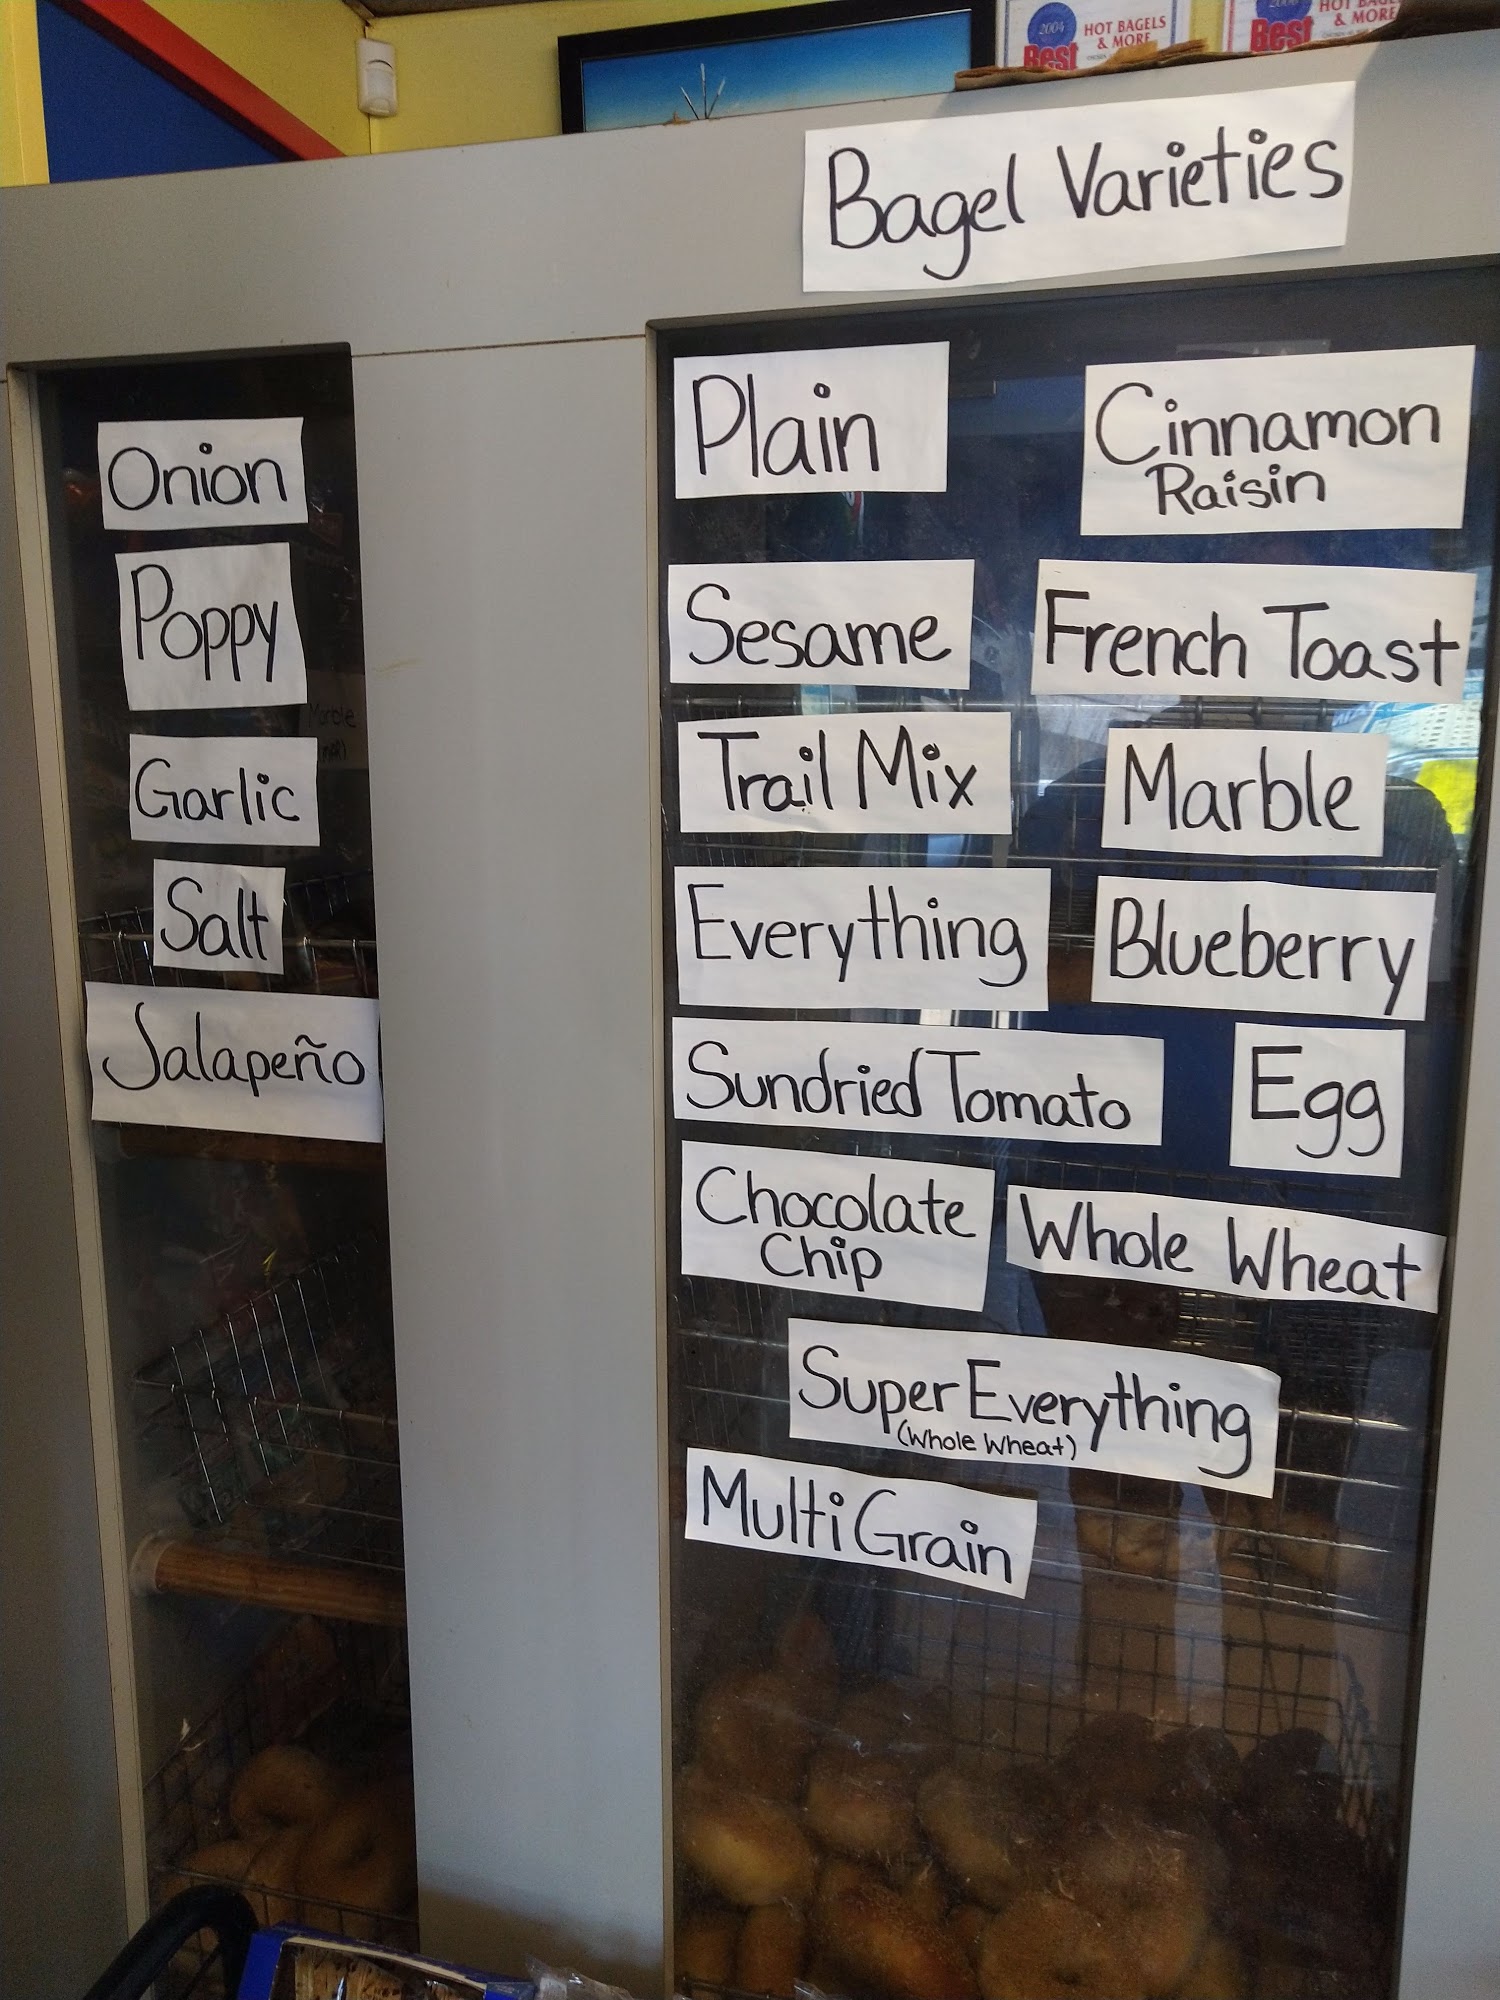 2004
Best
HOT BAGELS
& MORE
Best
HOT BAGELS
& MORE
Bagel Varieties
Onion
Poppy
Garlic
Salt
Jalapeño
Plain
Cinnamon
Raisin
Sesame
French Toast
Trail Mix
Marble
Everything
Blueberry
Sundried Tomato
Egg
Chocolate
Chip
Whole Wheat
Super Everything
(Whole Wheat)
Multi Grain
Marble